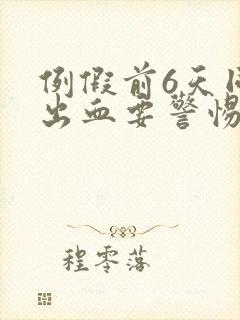 例假前6天
出血要警惕
程零落